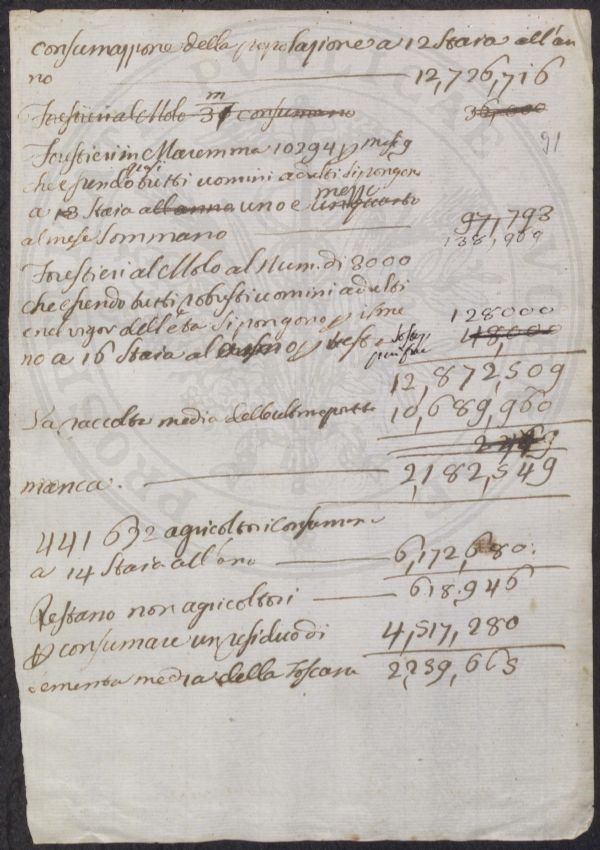 consumazione della popolazione a 12 staia all'an
no 12,726,716
Forestieri al Molo 3 m consumano 36,000
91
Forestieri in Maremma 10294 p mesi 9
che essendo quasi tutti uomini adulti si pongon
a 13 staia all'anno uno e mezzo
al mese sommano 97,793
138,969
Forestieri al Molo al Num. di 8000
che essendo tutti robusti uomini adulti
e nel vigor dell'età si pongono p il me 128000
no a 16 staia al p testa 48,000
12,872,509
La raccolta media dell'ultimo 10,689,960
manca. 2,182,549
441632 agricoltori consuman
a 14 staia all'ano 6,172,680.
Restano non agricoltori 618.946
p consumare un residuo di 4,517,280
sementa media della Toscana 2239,663